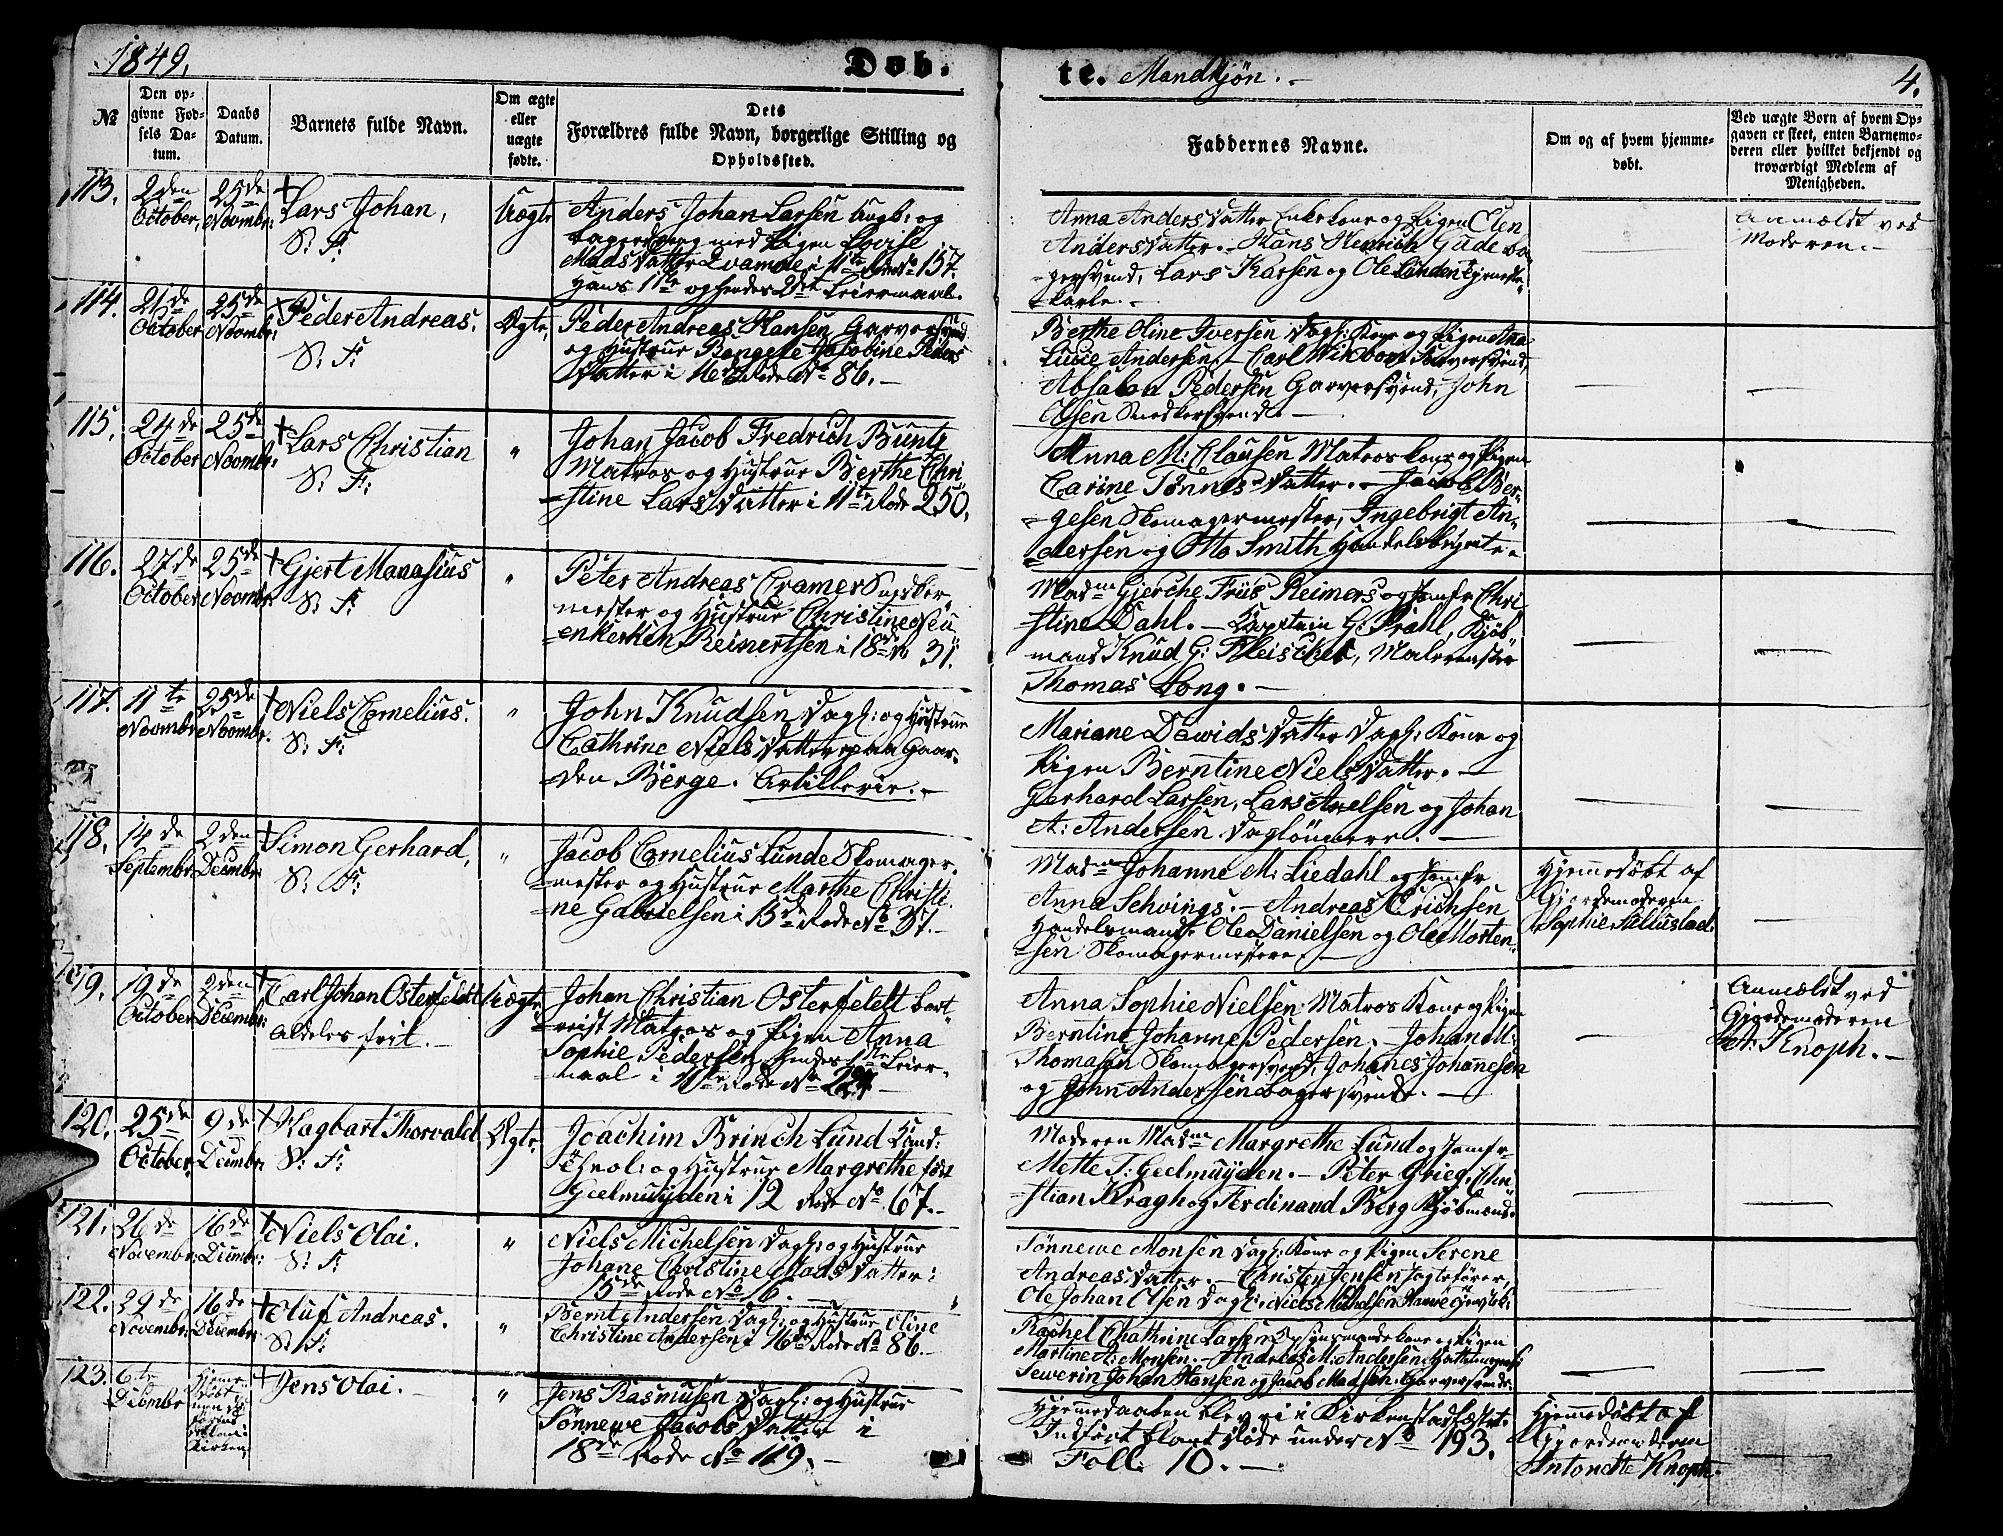 1849.
Døb-
te. Mandkjøn. -
4.
No
Den op-
givne Fød-
sels Da-
tum.
Daabs
Datum.
Barnets fulde Navn.
Om ægte
eller
uægte
fødte.
Dets
Forældres fulde Navn, borgerlige Stilling og
Opholdssted.
Faddernes Navne.
Om og af hvem hjemme-
døbt.
Ved uægte Børn af hvem Op-
gaven er skeet, enten Barnemo-
deren eller hvilket bekjendt og
troværdigt Medlem af
Menigheden.
113. 2den October, 25de Novmbr: Lars Johan, S: F: Uægte
Anders Johan Larsen Ungk: og
Bagersvend med Pigen Lovise
Madsdatter Qvamme i 11te Rode No 157.
Hans 1te og hendes 2det Leiermaal.
Anna Andersdatter Enkekone og Pigen Elen
Andersdatter. - Hans Henrich Gade Ba-
gersvend, Lars Karsen og Ole Linden Tjeneste-
karle. -
Anmeldt ved
Moderen. -
114. 21de October 25de Novmbr: Peder Andreas. S: F: Ægte,
Peder Andreas Hansen Garversvend
og Hustrue Bengete Jacobine Peders
datter i 16de Rode No 86. -
Berthe Oline Iversen Dagl: Kone og Pigen Ana
Lucie Andersen, - Carl Wikbom Farversvend,
Absalon Pedersen Garversvend, John
Olsen Snedkersvend. -
115. 24de October 25de Novmbr: Lars Christian S: F: "
Johan Jacob Fredrich Buntz
Matros og Hustrue Berthe Chri-
stine Larsdatter i 11te Rode 250.
Anna M: Clausen Matroskone og Pigen
Carine Tønnesdatter. - Jacob Ber-
gesen Skomagermester, Ingebrigt An-
dersen og Otto Smith Handelsbetjente.
116. 27de October 25de Novmbr: Gjert Manasius S: F: "
Peter Andreas Cramer Snedker
mester og Hustrue Christine Neü
enkerken Reinertsen i 18de No 31.
Madme Gjerche Friis Reimers og Jomfr Chri
stine Dahl. - Kaptein G. Prahl, Kjøb
mand Knud G: Fleischer, Malermester
Thomas Long. -
117. 11te Novmbr 25de Novmbr. Niels Cornelius. S: F: "
John Knudsen Dagl: og Hustrue
Cathrine Nielsdatter paa Gaar-
den Berge. Artillerie. -
Mariane Davidsdatter Dagl: Kone og
Pigen Berntine Nielsdatter. -
Gerhard Larsen, Lars Axelsen og Johan
A: Andersen Daglønnere. -
118. 14de Septembr 2den Decembr: Simon Gerhard, S: F: "
Jacob Cornelius Lunde Skomager-
mester og Hustrue Marthe Christi-
ne Gabrielsen i 15de Rode No 37. -
Madme Johanne M: Liedahl og Jomfr
Anna Schvings. - Andreas Erichsen
Handelsmand, Ole Danielsen og Ole Morten-
sen Skomagermestere. -
Hjemmedøbt af
Gjordemoderen
Sophie Sellustad.
119. 19de October 2den Decembr: Carl Johan Osterfeldt aldeles frit. - Uægte
Johan Christian Osterfeldt bort-
reist Matros og Pigen Anna
Sophie Pedersen hendes 1te Leier-
maal i 11te Rode No 224. -
Anna Sophie Nielsen Matros Kone og Pigen
Berntine Johanne Pedersen. - Johan M:
Thomasen Skomagersvend, Johanes Johanesen
og John Andersen Bagersvende. -
Anmeldt ved
Gjordemoderen
A: Knoph. -
120. 25de October 9de Decmbr: Hagbart Thorvald S: F: Ægte,
Joachim Brinch Lund Cand:
Theol: og Hustrue Margrethe født
Geelmuyden i 12 Rode No 67. -
Moderen Madme Margrethe Lund og Jomfr
Mette T: Geelmuyden. - Peter Grieg, Chri
stian Kragh og Ferdinand Berg Kjøbmænd.
121. 26de Novembr: 16de Decmbr: Niels Olai. S: F: "
Niels Michelsen Dagl: og Hustrue
Johane Christine Madsdatter i
15de Rode No 16. -
Sønnewe Monsen Dagl: Kone og Pigen Serene
Andreasdatter. - Christen Jensen Jægtefører,
Ole Johan Olsen Dagl:, Niels Michelsen
122. 29de Novembr: 16de Decembr: Oluf Andreas. S: F: "
Bernt Andersen Dagl: og Hustrue Oline
Christine Andersen i 16de Rode No 86. -
Rachel Chathrine Larsen Opsynsmandskone og Pigen
Martine A: Monsen. - Andreas M: Andersen Hattemager,
Sewerin Johan Hansen og Jacob Madsen Garversvende.
123. 6te Decmbr Hjemme døbt Kirken. Jens Olai. - "
Jens Rasmusen Dagl: og Hustrue
Sønnewe Jacobsdatter i
18de Rode No 119. -
Hjemmedaaben blev ei i Kirken stadfæstet.
Indført blant Døde under No 193.
Foll: 10. -
Hjemmedøbt af
Gjordemoderen
Antonette Knoph.